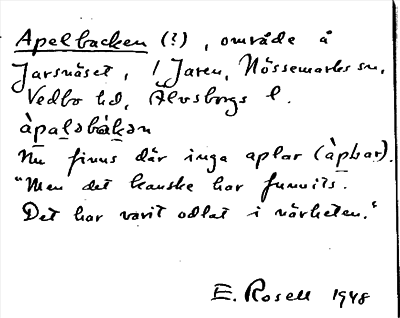 Apelbacken (?), område å
Jarsnäset, / Jaren, Nössemarks sn,
Vedbo hd, Älvsborgs l.
àpaləbàkən
Nu finns där inga aplar (àpɭar).
"Men det kanske har funnits.
Det har varit odlat i närheten."
E. Rosell 1948